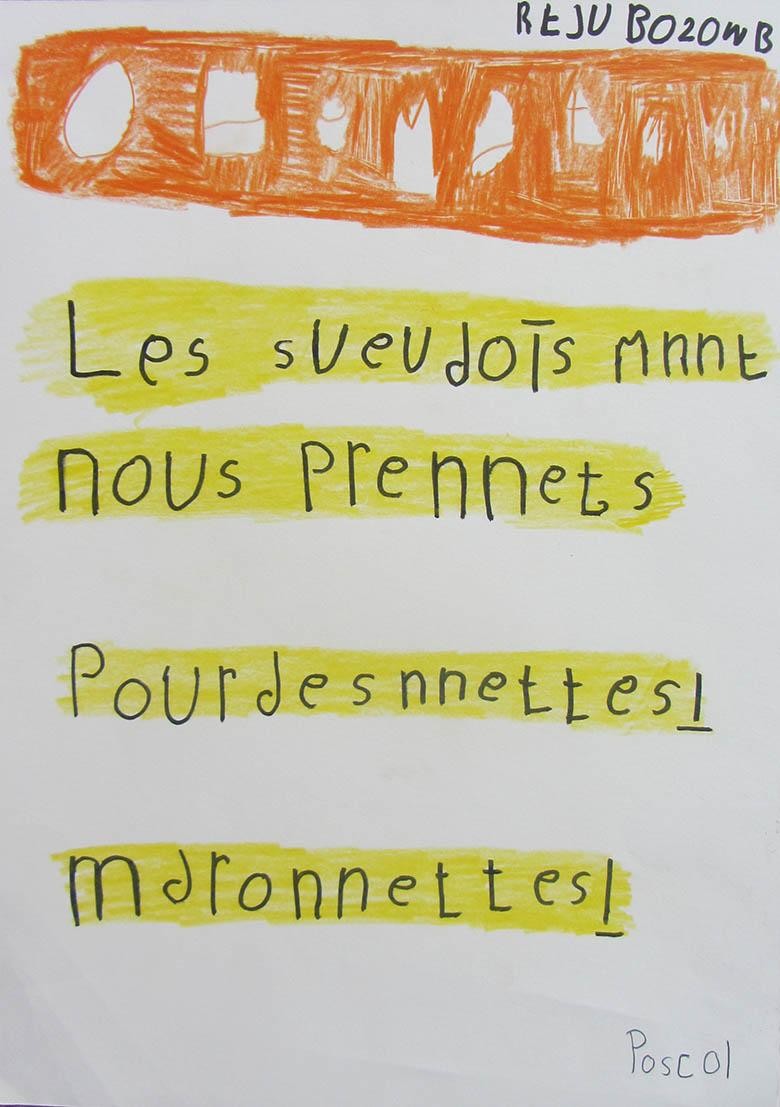 REJU BOZOWB
Les sueudoīs mnnt
nous prennets
Pourdesnnettes!
maronnettes!
Poscol